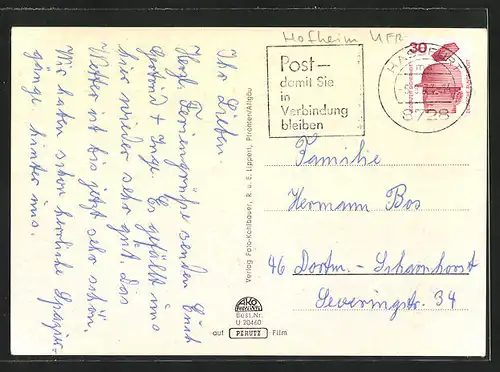 Hofheim UFR.
Post—
damit Sie
in
Verbindung
bleiben
HASSFURT
8728
30
Ihr Lieben.
Herzl. Feriengrüße senden Euch
Gertrud + Inge. Es gefällt uns
hier wieder sehr gut. Das
Wetter ist bis jetzt sehr schön,
Wir haben schon herrliche Spazier-
gänge hinter uns.
Verlag Foto-Kohlbauer, R. u. E. Lippert, Pfronten/Allgäu
Familie
Hermann Bos
46 Dortm.- Scharnhorst
Severingstr. 34
AKO
Best.Nr.
U 20460
auf PERUTZ Film